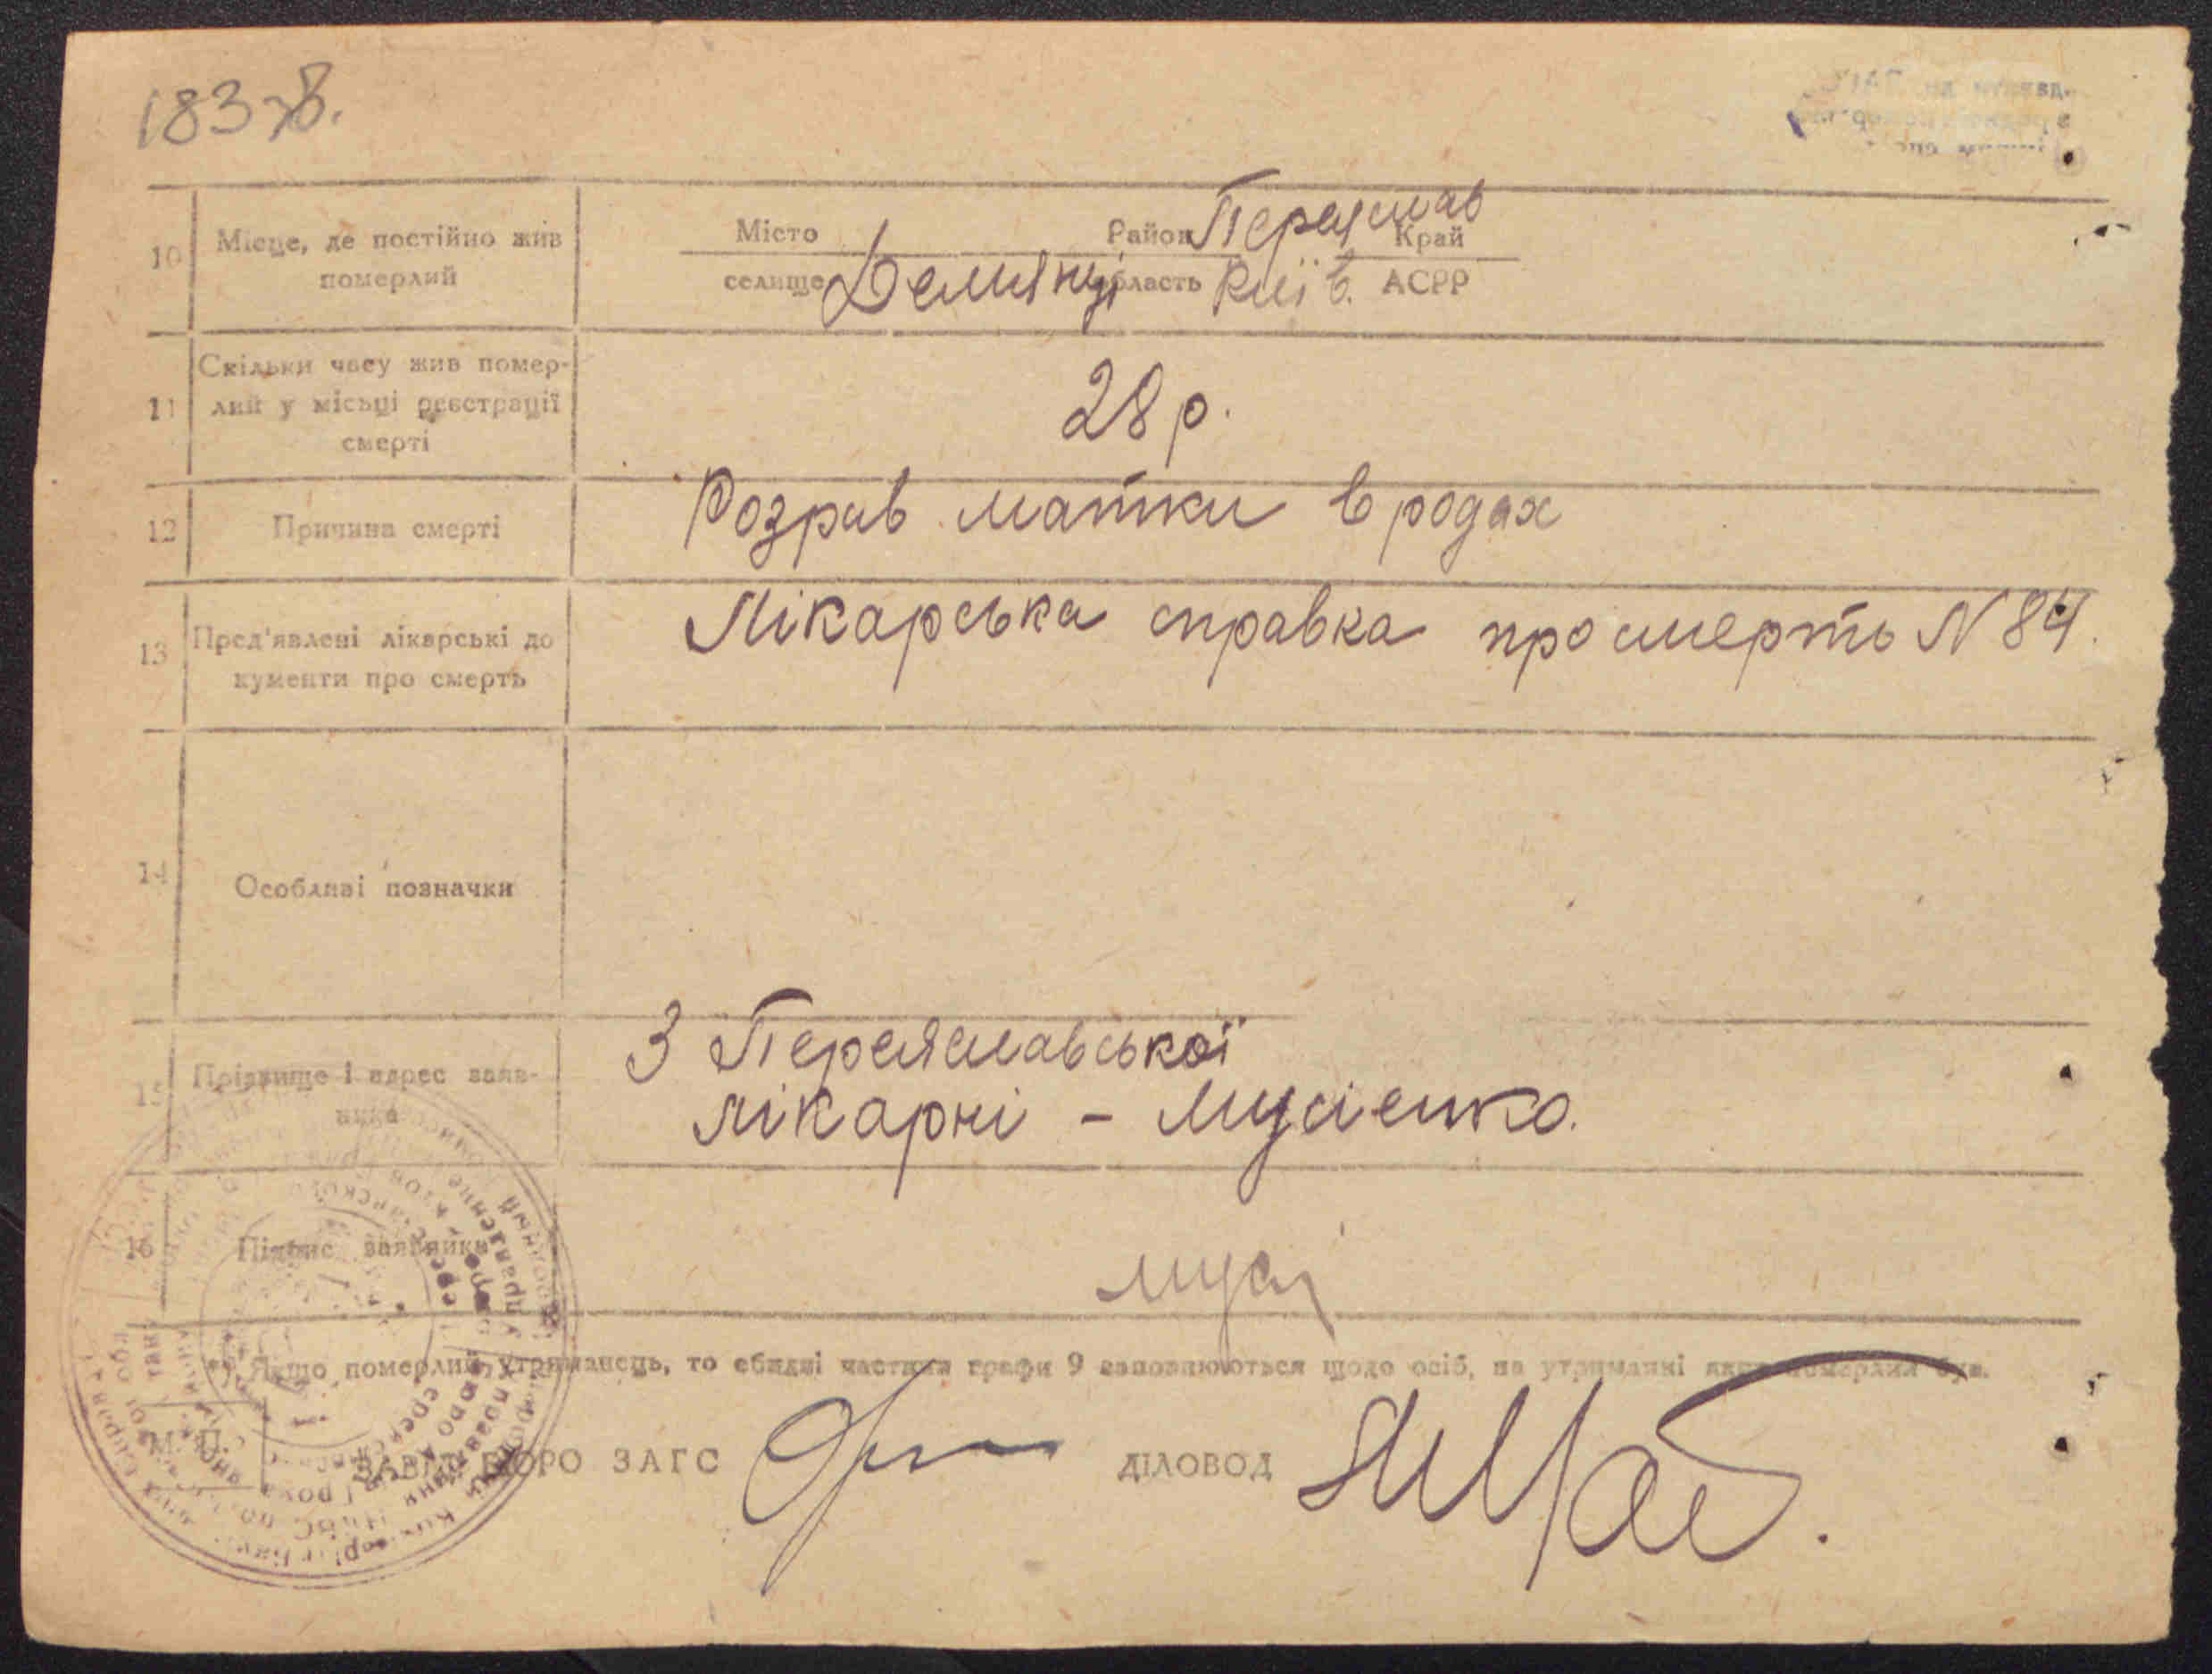 183 зв.
10 Місце, де постійно жив померлий
Місто Район Переяслав Край
селище Демянці область Київ. АСРР
11 Скільки часу жив помер-
лий у місьці реєстрації
смерті
28 р.
12 Причина смерті
Розрив матки в родах
13 Пред'явлені лікарські до
кументи про смерть
Лікарська справка про смерть N 84.
14 Особливі позначки
15 Прізвище і адрес заяв-
ника
З Переяславської
лікарні - Мусієнко.
16 Підпис заявника
Мусі
*) Якщо померлий утриманець, то обидві частини графи 9 заповнюються щодо осіб, на утриманні яких померлий був.
М. П.
ЗАВІД. БЮРО ЗАГС ДІЛОВОД